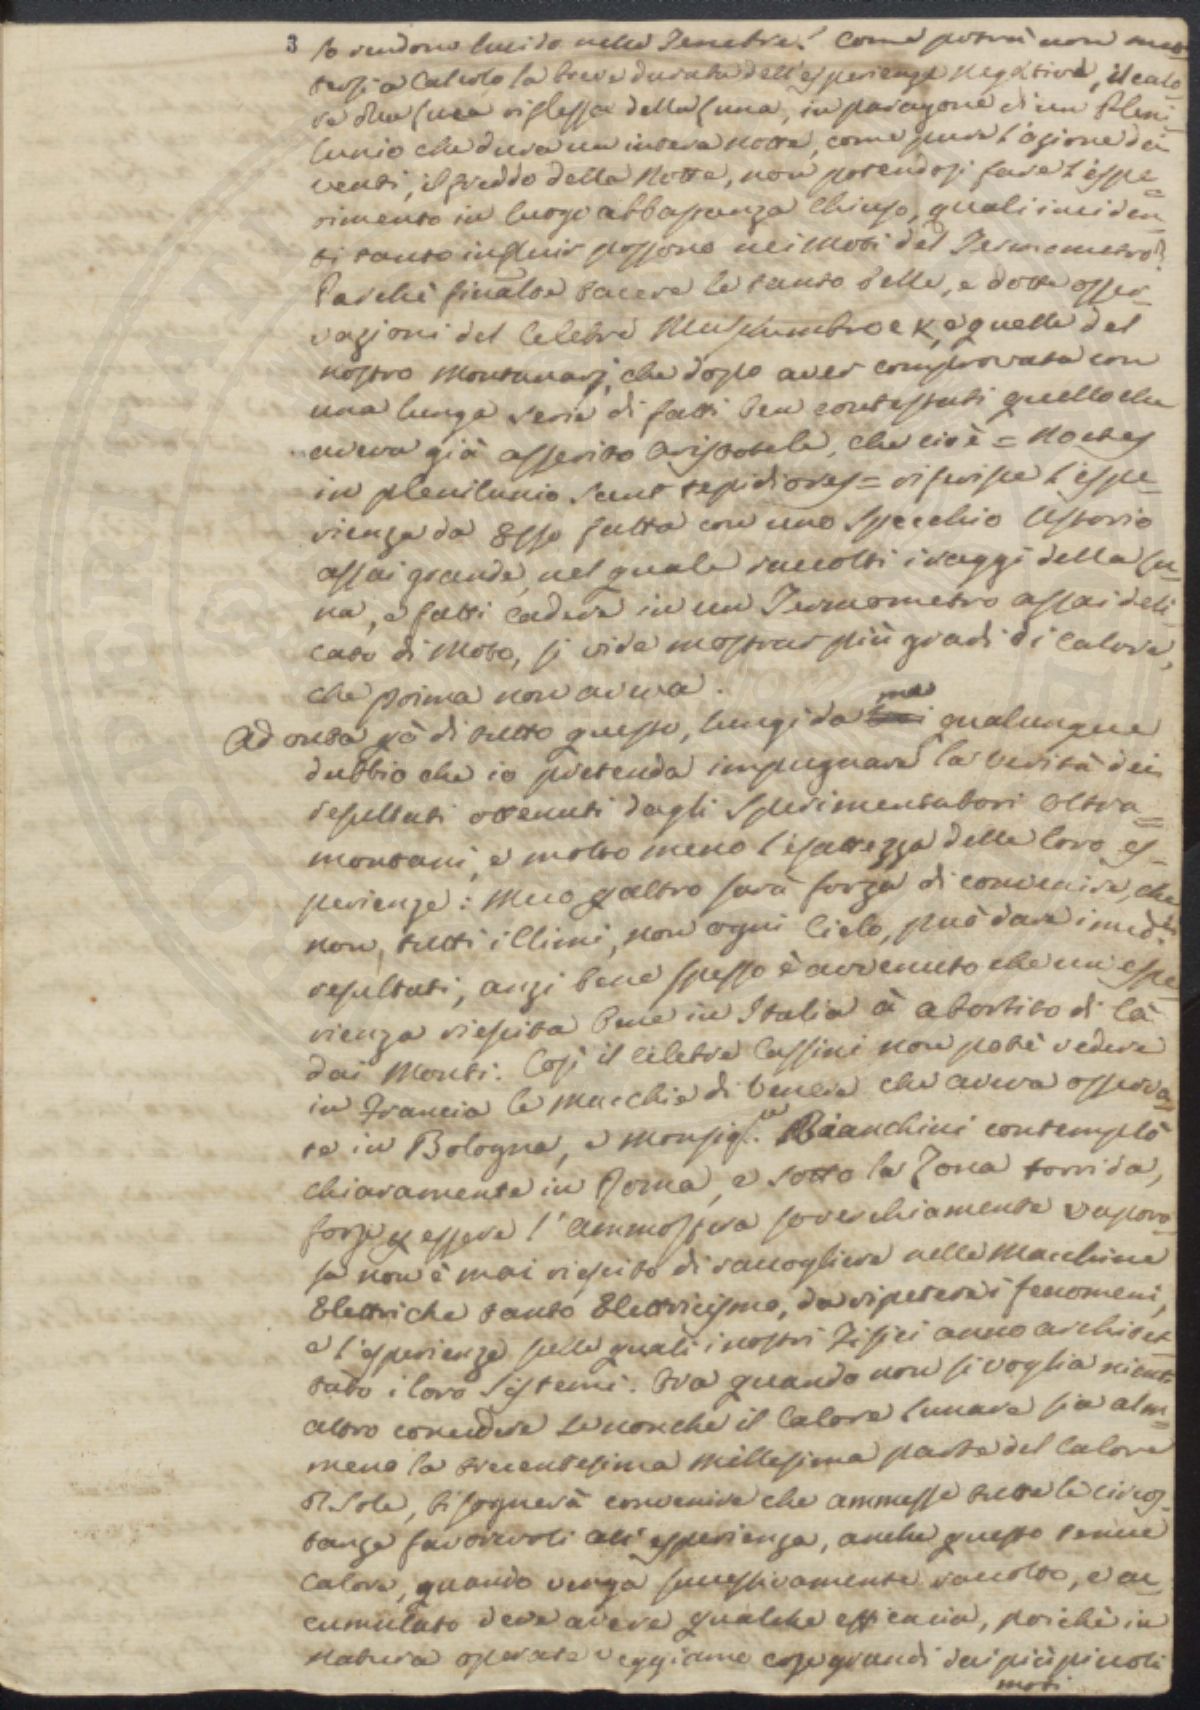 3
so rendono lucido nelle Tenebre! Come potrà non met
tersi a Calcolo la breve durata dell'esperienza Negativa, il calo
re della Luce riflessa della Luna, in paragone di un Pleni
lunio che dura un intera notte, come pure l'azione dei
venti, il freddo della Notte, non potendosi fare l'espe=
rimento in luogo abbastanza Chiuso, quali inciden
ti tanto influir possono nei Moti del Termometro?
Perchè finalte tacere le tanto belle, e dotte osser=
vazioni del Celebre Muschumbroek, e quelle del
nostro Montanarj, che dopo aver comprovata con
una lunga serie di fatti ben contestati quello che
aveva già asserito Aristotele, che cioè = Noctes
in plenilunio sunt tepidiores = riferisce l'espe=
rienza da Esso fatta con uno Specchio Ustorio
assai grande, nel quale raccolti i raggi della Lu=
na, e fatti cadere in un Termometro assai deli
cato di Moto, si vide mostrar più gradi di Calore,
che prima non aveva.
Ad onta pò di tutto questo, lungi da me qualunque
dubbio che io pretenda impugnare la verità dei
resultati ottenuti dagli Sperimentatori Oltra=
montani, e molto meno l'esattezza delle loro es=
perienze: Meco p altro sarà forza di convenire, che
non tutti i Climi, non ogni Cielo, può dare i med:mi
resultati, anzi bene spesso è avvenuto che un espe
rienza riescita bene in Italia à abortito di là
dai Monti. Così il celebre Cassini non potè vedere
in Francia le Macchie di Venere che aveva osserva=
te in Bologna, e Monsig.re Bianchini contemplò
chiaramente in Roma, e sotto la Zona torrida,
forse p essere l'ammosfera soverchiamente vaporo
sa non è mai riescito di raccogliere nelle Macchine
Elettriche tanto Elettricismo, da ripetere i fenomeni,
e l'esperienze sulle quali i nostri Fisici anno architet
tato i loro Sistemi. Ora quando non si voglia nient
altro concedere se non che il Calore Lunare sia alm=
meno la trecentesima Millesima parte del Calore
di Sole, bisognerà convenire che ammesse tutte le circos=
tanze favorevoli all'esperienza, anche questo tenue
Calore, quando venga successivamente raccolto, e ac
cumulato deve avere qualche efficacia, poichè in
Natura operate veggiamo cose grandi dai più piccoli
moti